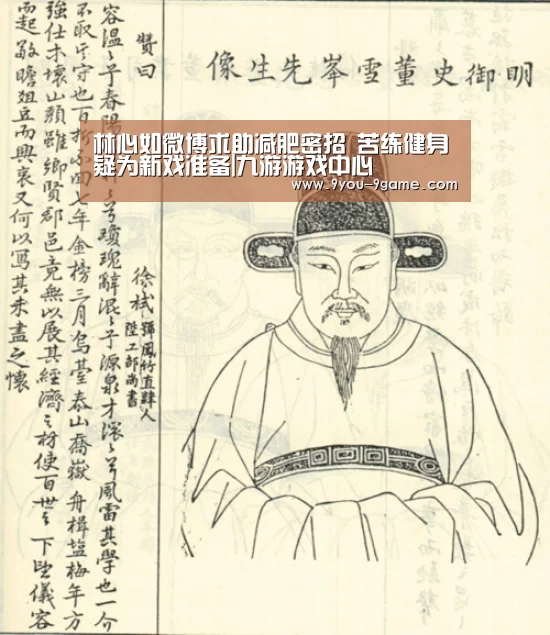 明御史董雪岑先生像
林心如微博求助减肥密招 苦练健身
疑为新戏准备|九游游戏中心
www.9you-9game.com
贊曰
容溫溫乎春陽
兮瓊瑰辭混混乎源泉才滚滚兮風雷其學也一介
不取其守也百折不回七年金榜三月烏臺泰山喬嶽舟楫塩梅年方
強仕木壞山頹雖鄉賢郡邑竟無以展其經濟之材使百世之下陞儀容
而起敬瞻俎豆而興哀又何以寫其未盡之懷
徐栻號鳳竹直隸人
陞工部尚書